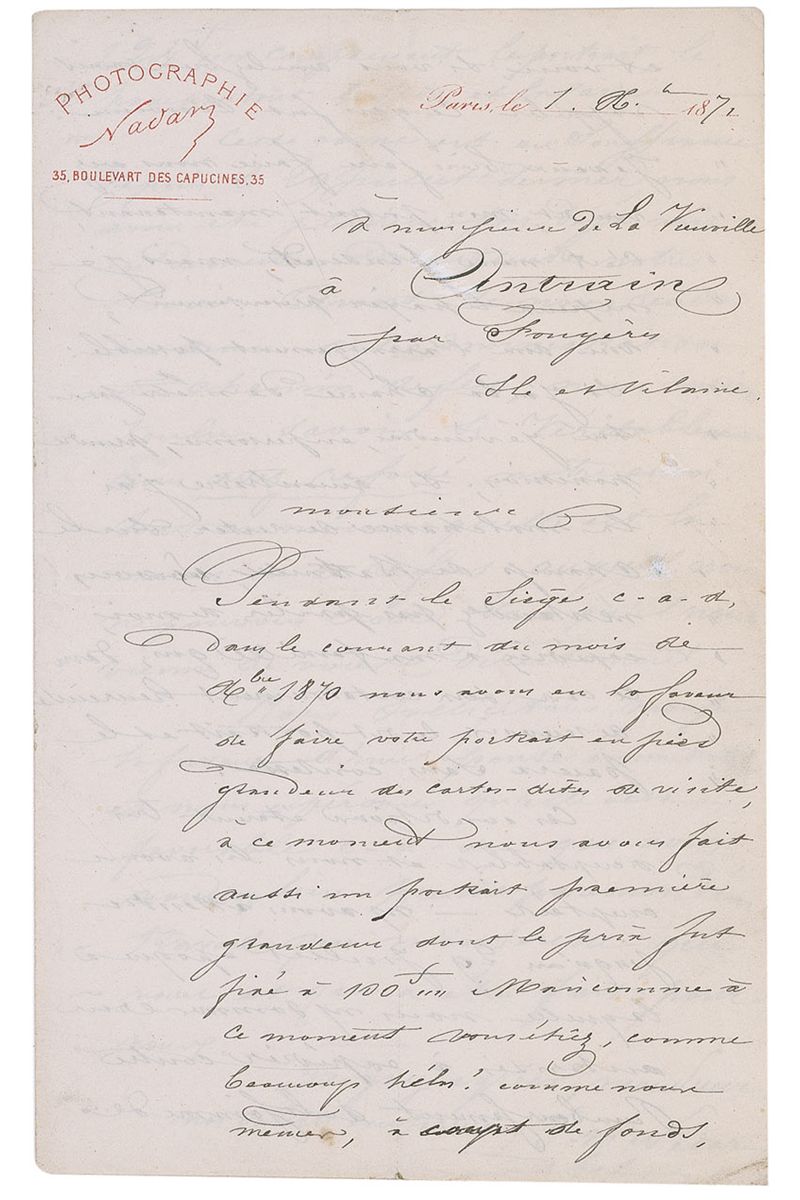 PHOTOGRAPHIE
Nadar
35, BOULEVART DES CAPUCINES, 35
Paris, le 1. Xbre 1871
à monsieur de La Vieuville
à Antrain
par Fougères
Ile et Vilaine.
monsieur
Pendant le Siège, c-a-d,
dans le courant du mois de
Xbre 1870 nous avons eu la faveur
de faire votre portrait en pied
grandeur des cartes-dites de visite,
à ce moment nous avons fait
aussi un portrait première
grandeur dont le prix fut
fixé à 100f Mais comme à
ce moment vous étiez, comme
beaucoup hélas! comme nous
mêmes, à court de fonds,